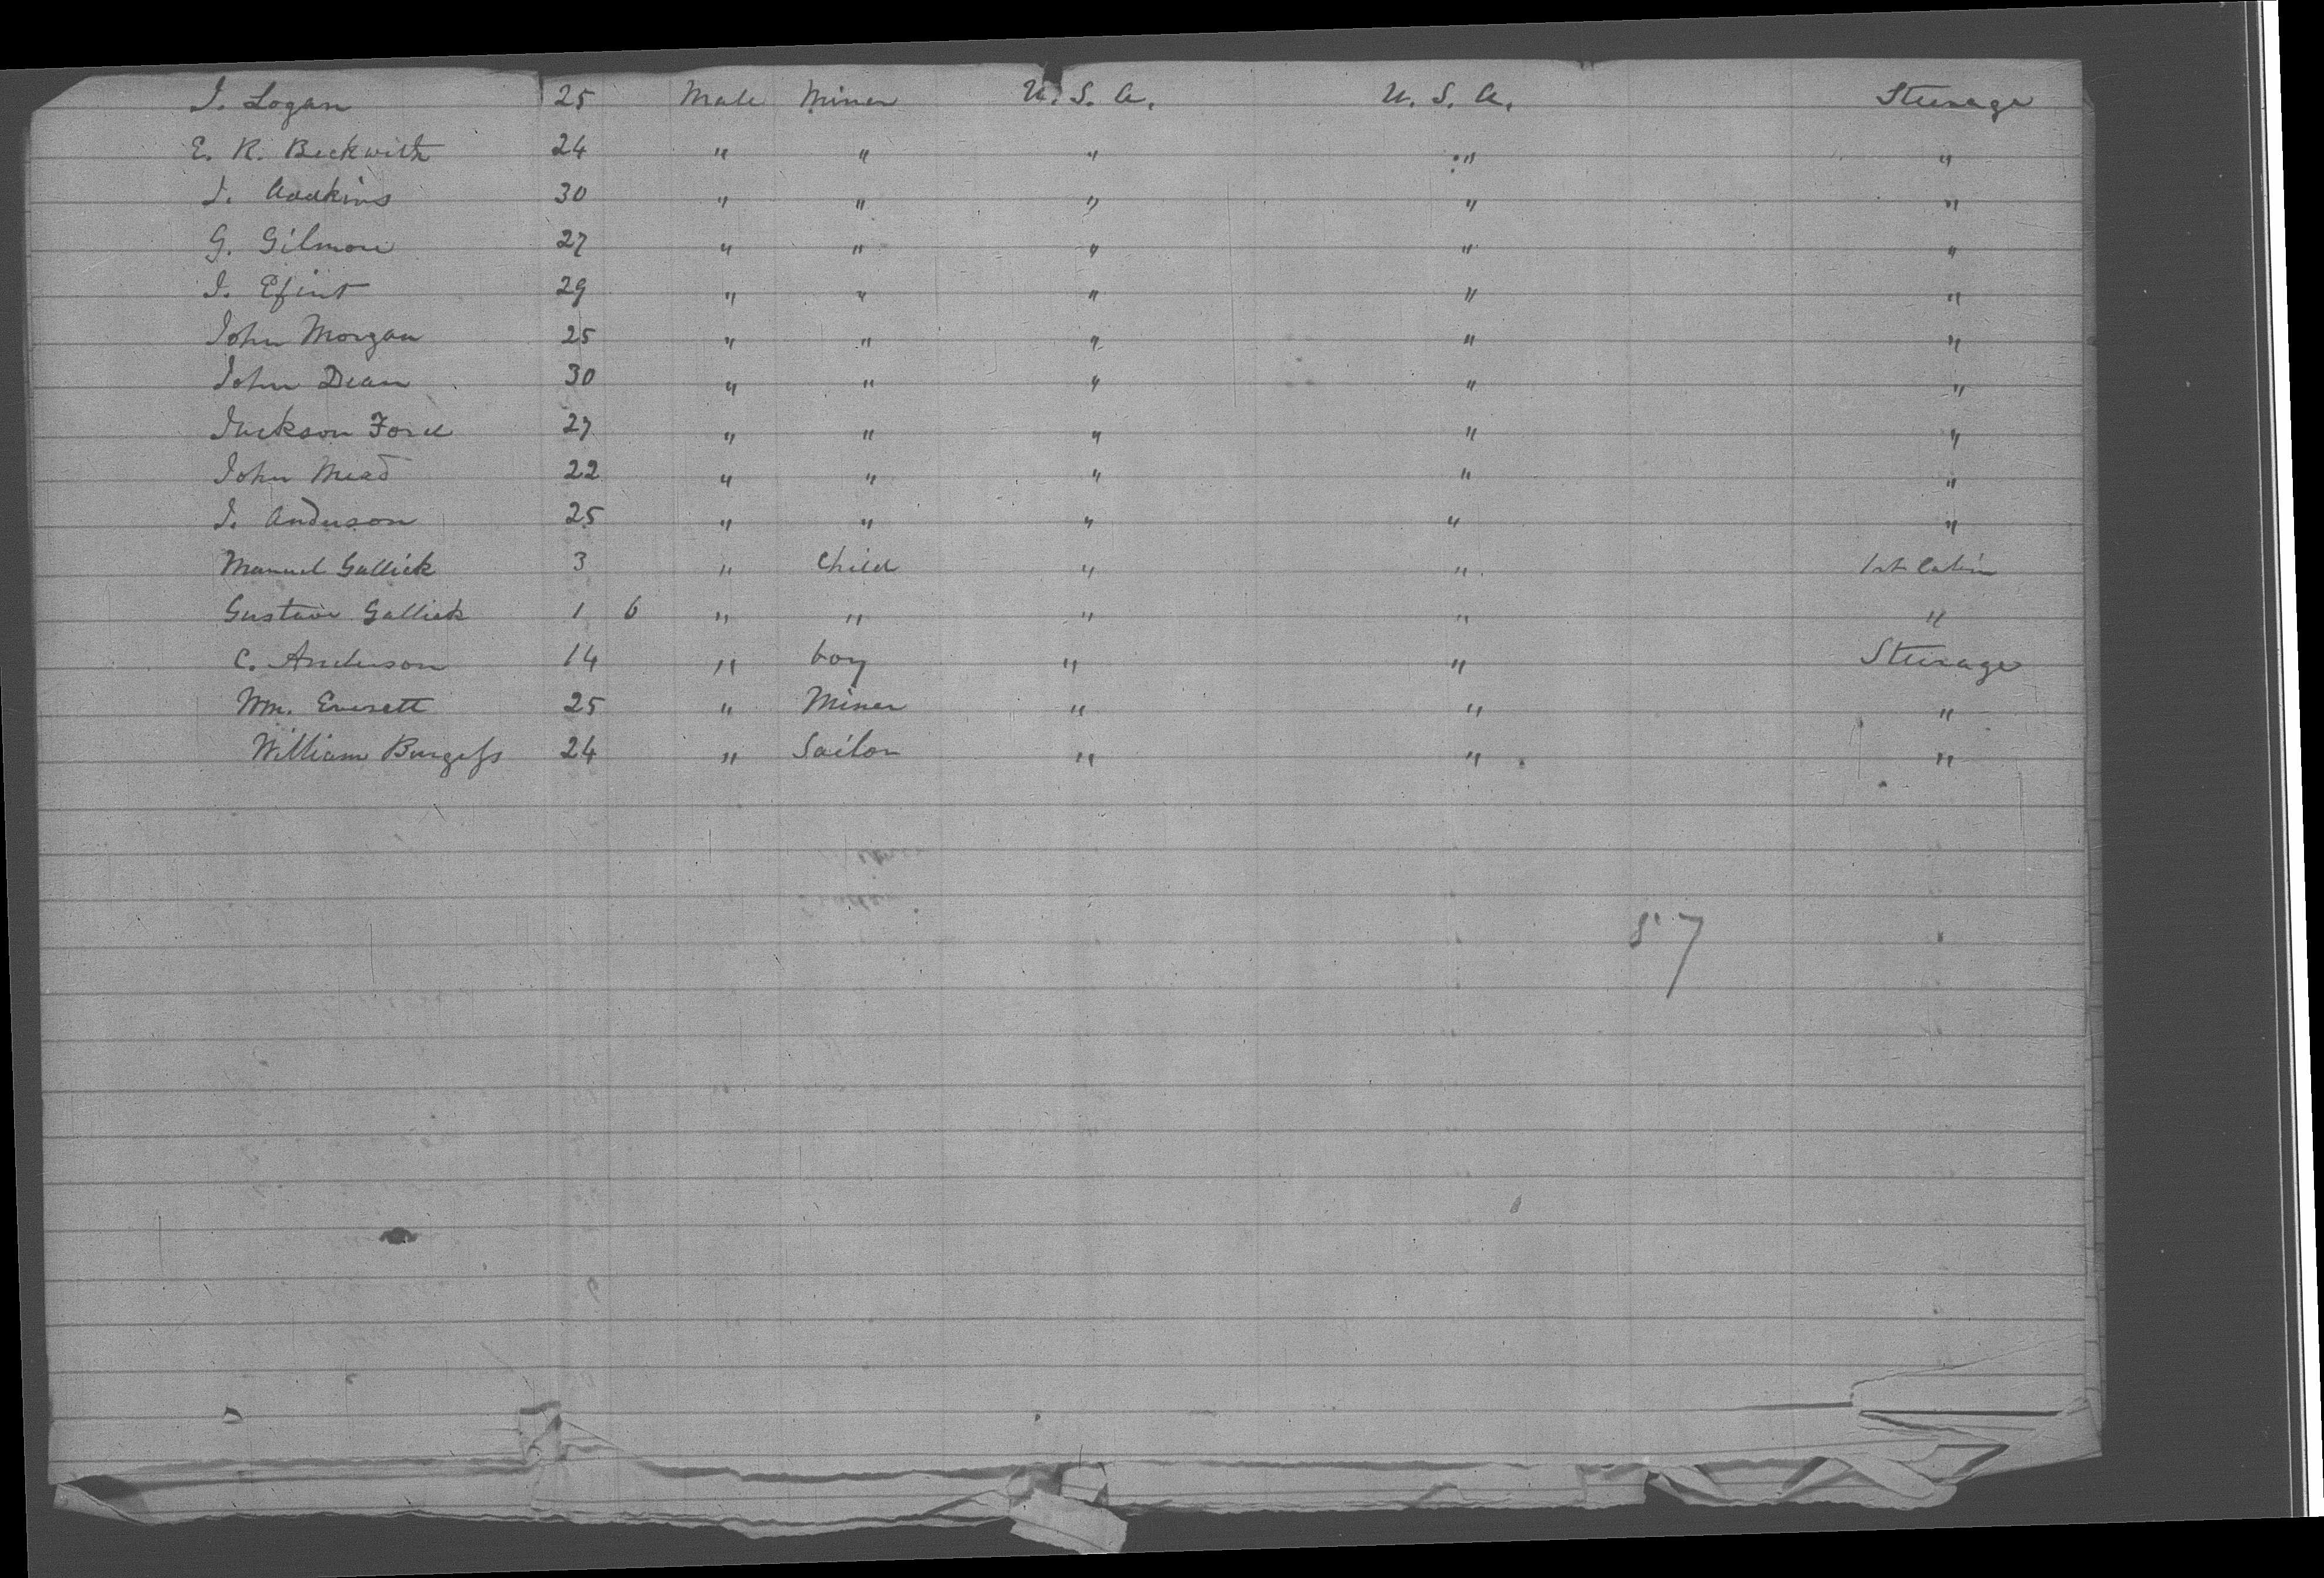 J. Logan 25 Male Miner U. S. A. U. S. A. Steerage
E. R. Beckwith 24 " " " " "
J. Adkins 30 " " " " "
G. Gilmore 27 " " " " "
J. 29 " " " " "
John Morgan 25 " " " " "
John Dean 30 " " " " "
Jackson Ford 27 " " " " "
John Mead 22 " " " " "
J. Anderson 25 " " " " "
Manuel Gallick 3 " Child " " 1st Cabin
Gustave Gallick 1 6 " " " " "
C. Anderson 14 " boy " " Steerage
Wm. Everett 25 " Miner " " "
William Burgess 24 " Sailor " " "
57